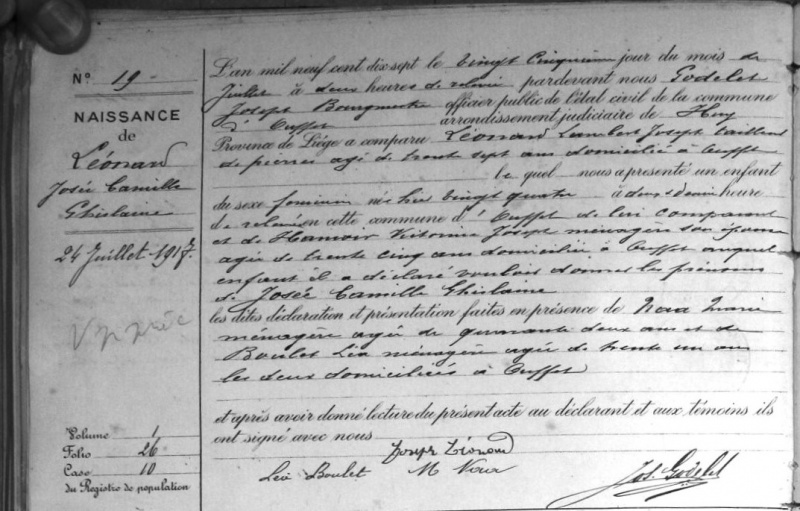 N° 19
NAISSANCE
de
Léonard
Josée Camille
Ghislaine
24 Juillet 1917.
Volume 1
Folio 26
Case 10
du Registre de population
L'an mil neuf cent dix sept le vingt cinquième jour du mois de
Juillet à deux heures de relevée pardevant nous Godelet
Joseph Bourgmestre officier public de l'état civil de la commune
d'Ouffet arrondissement judiciaire de Huy
Province de Liége a comparu Léonard Lambert Joseph tailleur
de pierres agé de trente sept ans domicilié à Ouffet
le quel nous a présenté un enfant
du sexe féminin née hier vingt quatre à deux & demie heure
de relevée en cette commune d'Ouffet de lui comparant
et de Hamoir Victorine Joseph ménagère son épouse
agée de trente cinq ans domiciliée à Ouffet auquel
enfant il a déclaré vouloir donner les prénoms
de Josée Camille Ghislaine
les dites déclaration et présentation faites en présence de Nora Marie
ménagère agée de quarante deux ans et de
Boulet Léa ménagère agée de trente un ans
les deux domiciliées à Ouffet
et après avoir donné lecture du présent acte au déclarant et aux témoins ils
ont signé avec nous
Joseph Léonard
Léa Boulet M Nora Jos. Godelet